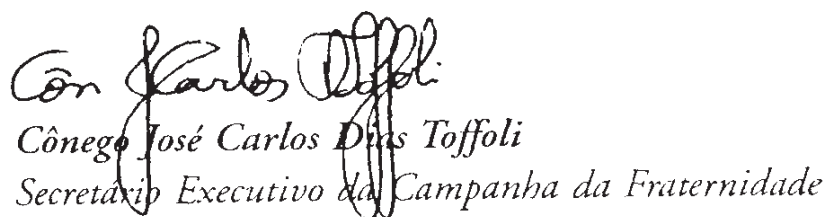 Côn J Carlos Toffoli
Cônego José Carlos Dias Toffoli
Secretário Executivo da Campanha da Fraternidade